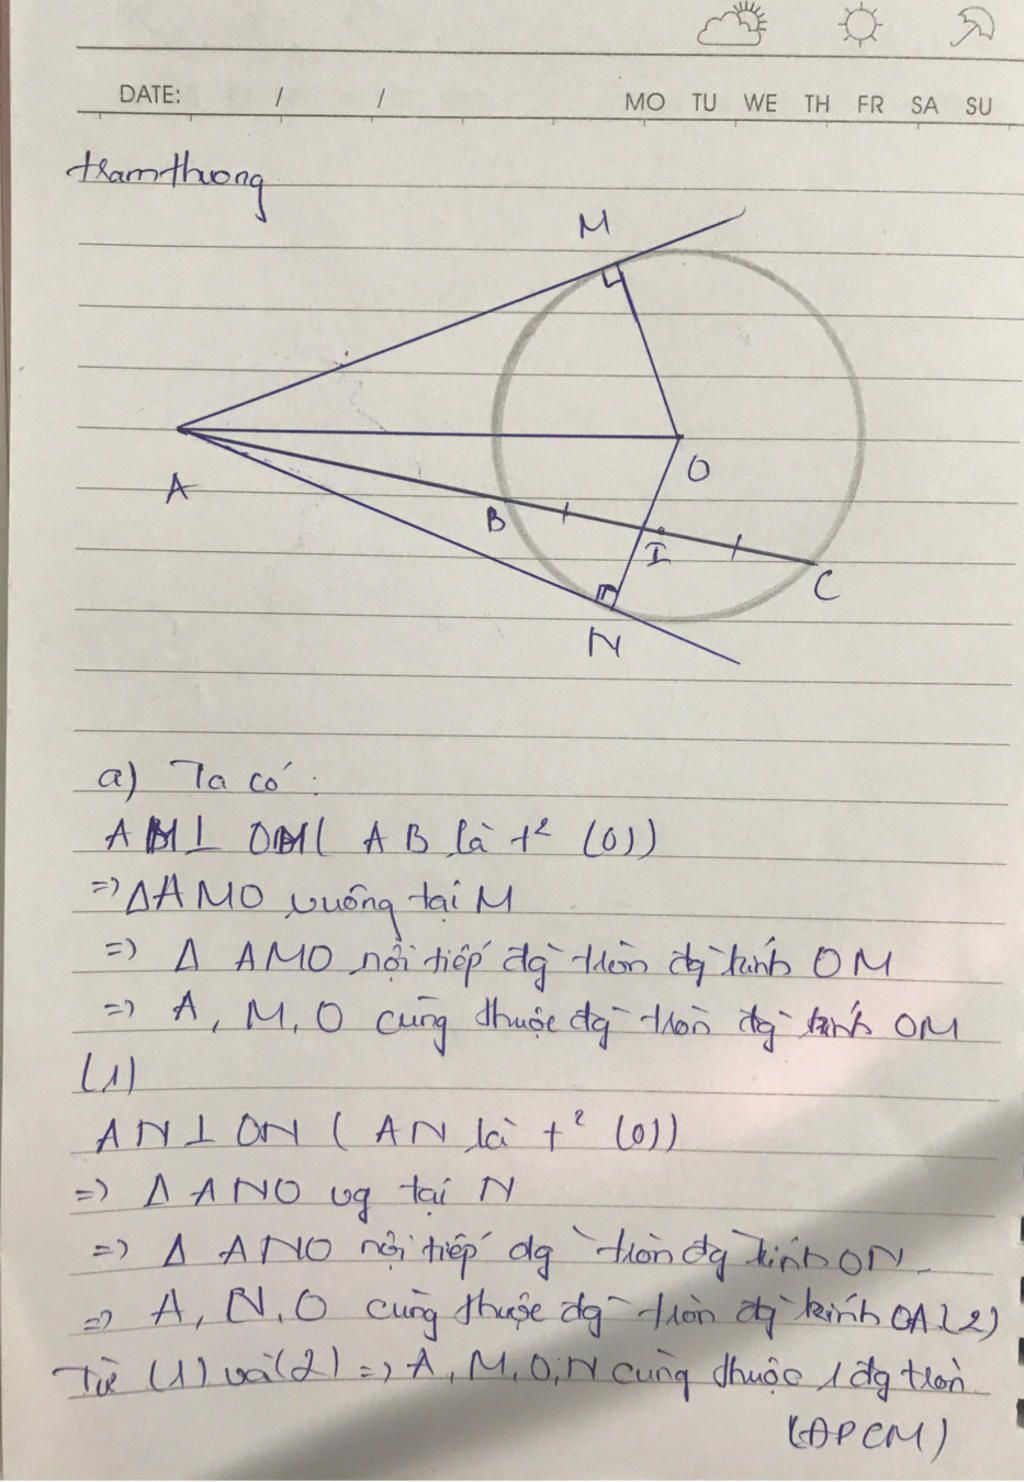 DATE: / /
MO TU WE TH FR SA SU
tramthuong
M
A
O
B
I
C
N
a) Ta có :
AM ⊥ OM ( AB là t² (O))
=> Δ AMO vuông tại M
=> Δ AMO nội tiếp đg` tròn đg` kính OM
=> A, M, O cùng thuộc đg` tròn đg` kính OM
(1)
AN ⊥ ON ( AN là t² (O))
=> Δ ANO vg tại N
=> Δ ANO nội tiếp đg` tròn đg kính ON
=> A, N, O cùng thuộc đg` tròn đg` kính OA (2)
Từ (1) và (2) => A, M, O, N cùng thuộc 1 đg tròn
(ĐPCM)